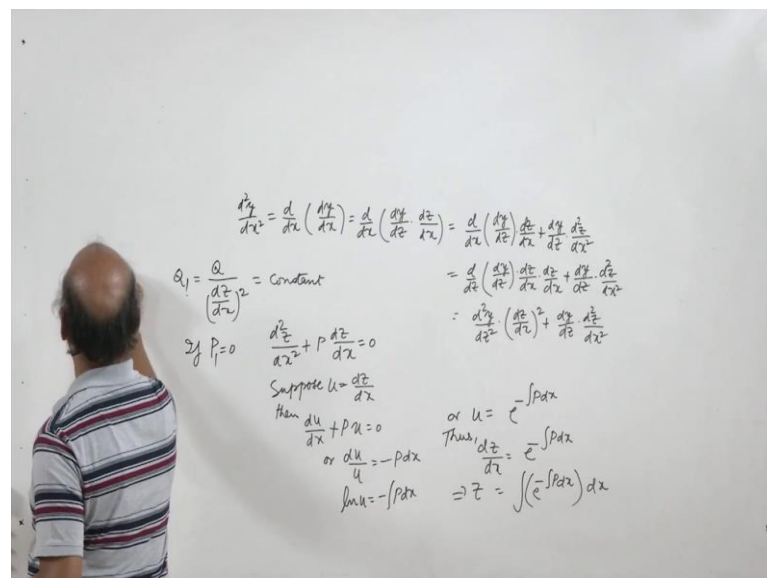 d²y/dx² = d/dx (dy/dx) = d/dx (dy/dz · dz/dx) = d/dx (dy/dz) · dz/dx + dy/dz · d²z/dx²
= d/dz (dy/dz) · dz/dx · dz/dx + dy/dz · d²z/dx²
= d²y/dz² · (dz/dx)² + dy/dz · d²z/dx²
Q₁ = Q/(dz/dx)² = constant
If P₁=0 d²z/dx² + P dz/dx = 0
Suppose u = dz/dx
then du/dx + Pu = 0
or du/u = -Pdx
ln u = -∫Pdx
or u = e^(-∫Pdx)
Thus, dz/dx = e^(-∫Pdx)
⇒ z = ∫(e^(-∫Pdx)) dx